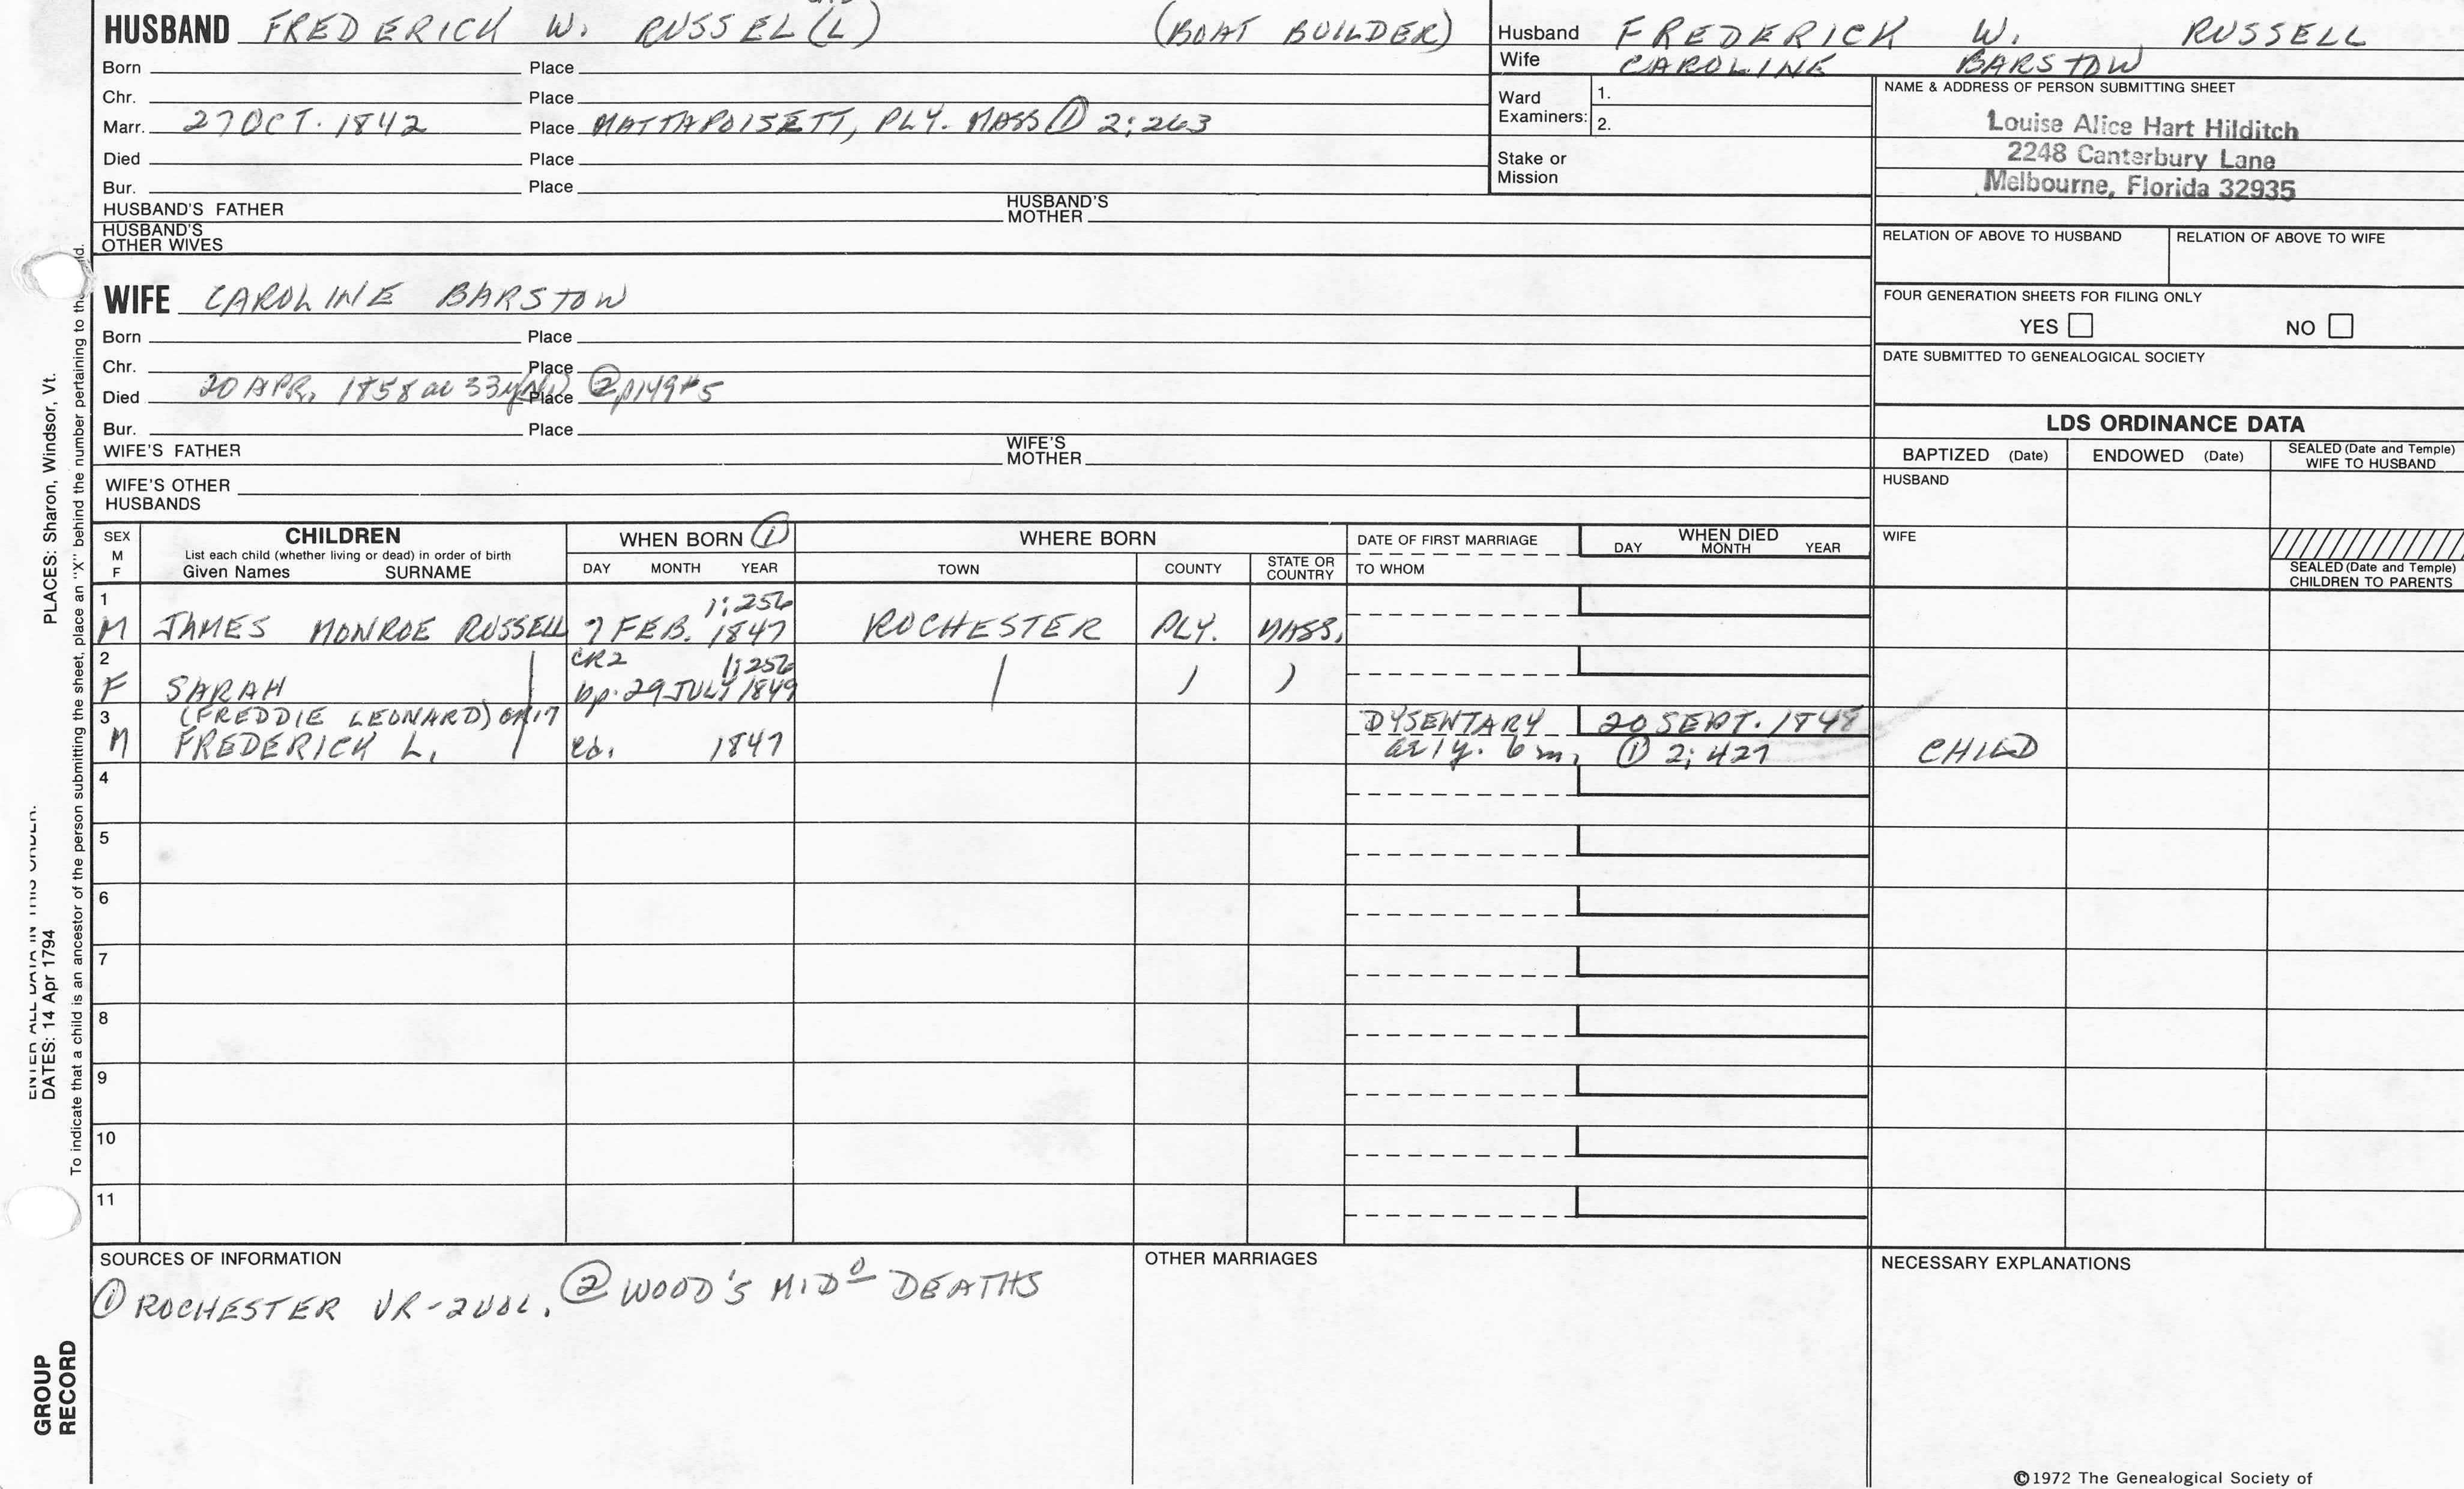 HUSBAND FREDERICK W. RUSSEL(L) (BOAT BUILDER)
Born Place
Chr. Place
Marr. 27 OCT. 1842 Place MATTAPOISETT, PLY. MASS ① 2:263
Died Place
Bur. Place
HUSBAND'S FATHER HUSBAND'S MOTHER
HUSBAND'S OTHER WIVES
Husband FREDERICK W. RUSSELL
Wife CAROLINE BARSTOW
Ward Examiners: 1.
2.
Stake or Mission
NAME & ADDRESS OF PERSON SUBMITTING SHEET
Louise Alice Hart Hilditch
2248 Canterbury Lane
Melbourne, Florida 32935
RELATION OF ABOVE TO HUSBAND RELATION OF ABOVE TO WIFE
FOUR GENERATION SHEETS FOR FILING ONLY
YES NO
DATE SUBMITTED TO GENEALOGICAL SOCIETY
WIFE CAROLINE BARSTOW
Born Place
Chr. Place
Died 20 APR. 1858 ae 33y Place ② p149#5
Bur. Place
WIFE'S FATHER WIFE'S MOTHER
WIFE'S OTHER HUSBANDS
LDS ORDINANCE DATA
BAPTIZED (Date) ENDOWED (Date) SEALED (Date and Temple) WIFE TO HUSBAND
HUSBAND
WIFE
SEALED (Date and Temple) CHILDREN TO PARENTS
SEX M F
CHILDREN
List each child (whether living or dead) in order of birth
Given Names SURNAME
WHEN BORN ①
DAY MONTH YEAR
WHERE BORN
TOWN COUNTY STATE OR COUNTRY
DATE OF FIRST MARRIAGE
TO WHOM
WHEN DIED
DAY MONTH YEAR
1 1:256
M JAMES MONROE RUSSELL 7 FEB. 1847 ROCHESTER PLY. MASS.
2 CR2 1:256
F SARAH bp. 29 JULY 1849
3 (FREDDIE LEONARD) GR17 DYSENTARY 20 SEPT. 1848
M FREDERICK L. cd. 1847 ae 1y. 6m. ① 2:427 CHILD
4
5
6
7
8
9
10
11
SOURCES OF INFORMATION
① ROCHESTER VR-2VOL. ② WOOD'S MIDº DEATHS
OTHER MARRIAGES
NECESSARY EXPLANATIONS
©1972 The Genealogical Society of
PLACES: Sharon, Windsor, Vt.
ENTER ALL DATA IN THIS ORDER:
DATES: 14 Apr 1794
To indicate that a child is an ancestor of the person submitting the sheet, place an "X" behind the number pertaining to the child.
GROUP RECORD